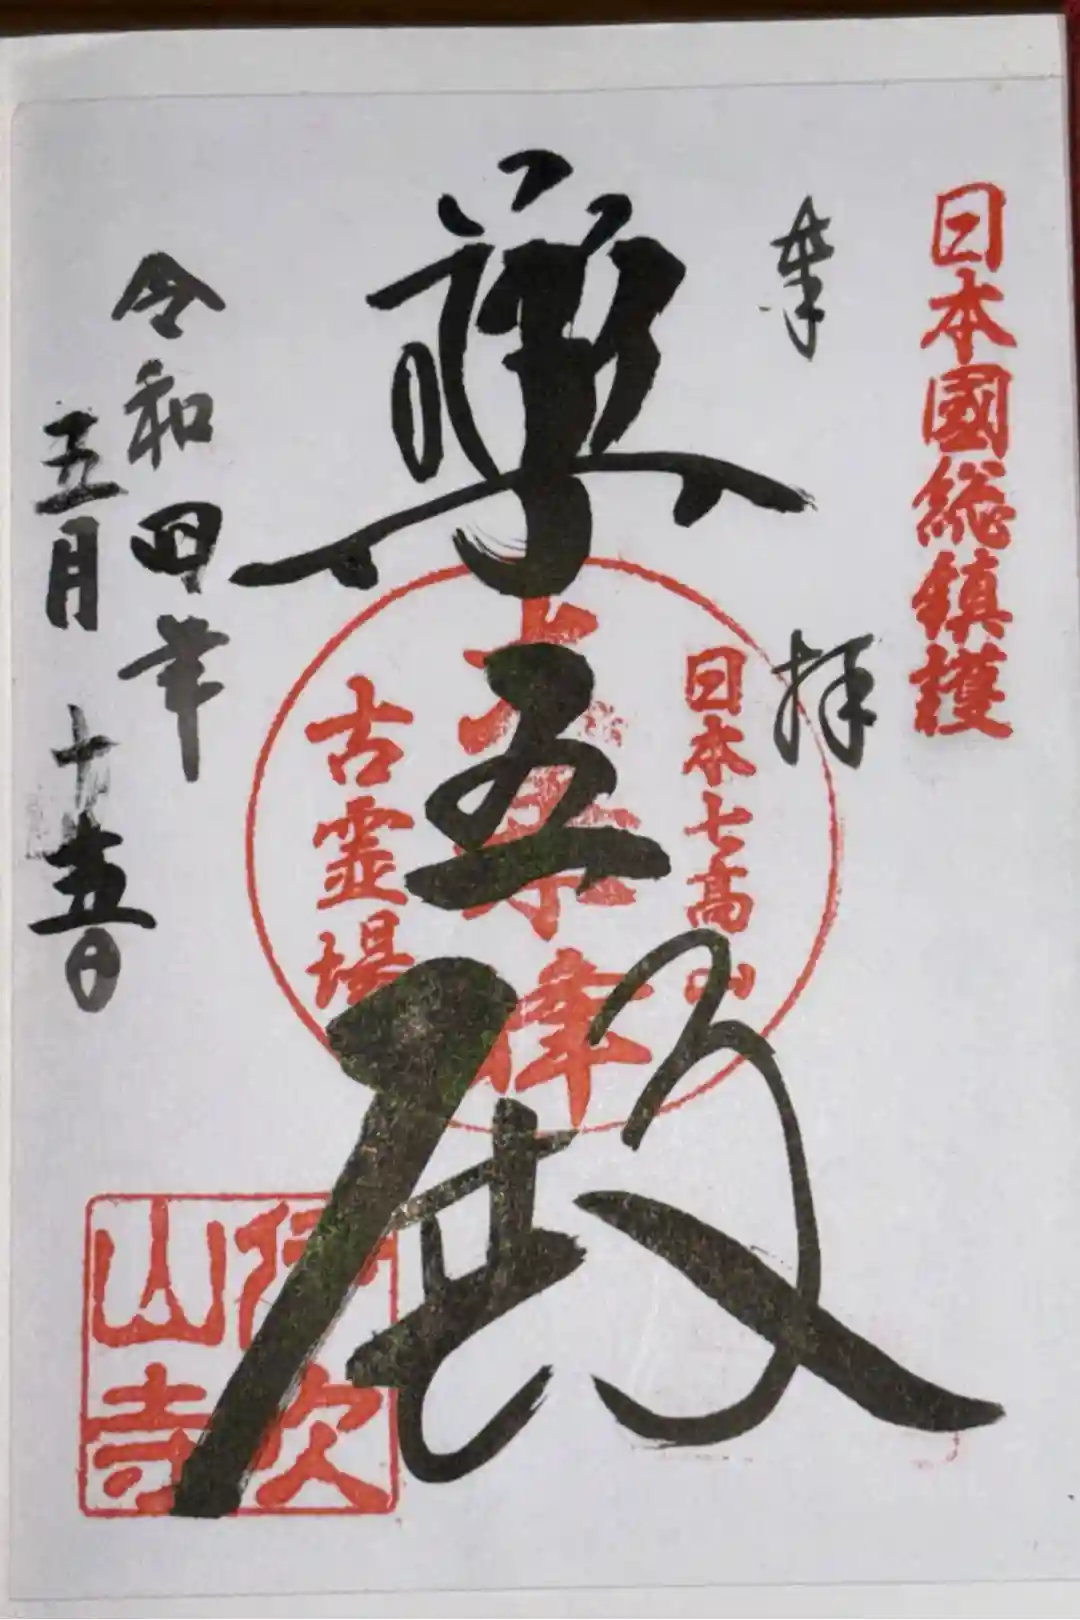 日本國総鎮護
奉拝
日本七高山
殿
古霊場
伊吹山寺
令和四年
五月十五日